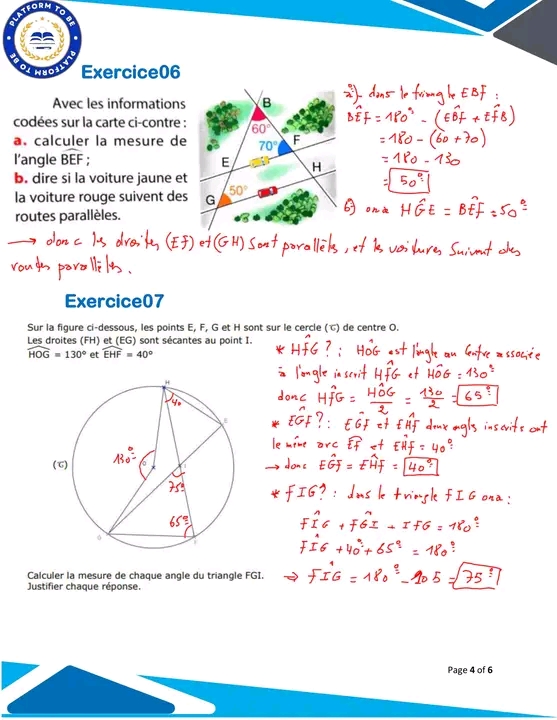 PLATFORM TO BE
PLATFORM TO BE
Exercice06
Avec les informations
codées sur la carte ci-contre :
a. calculer la mesure de
l'angle BEF ;
b. dire si la voiture jaune et
la voiture rouge suivent des
routes parallèles.
B
60°
70°
F
E
H
G
50°
a)- dans le triangle EBF :
BÊF = 180° - (EB̂F + EF̂B)
= 180 - (60 + 70)
= 180 - 130
= 50°
b) on a HĜE = BÊF = 50°
→ donc les droites (EF) et (GH) sont parallèles, et les voitures suivent des
routes parallèles.
Exercice07
Sur la figure ci-dessous, les points E, F, G et H sont sur le cercle (C) de centre O.
Les droites (FH) et (EG) sont sécantes au point I.
HOG = 130° et EHF = 40°
H
40
E
(C)
130°
O
I
75°
65°
G
F
* HF̂G ? : HÔG est l'angle au centre associée
à l'angle inscrit HF̂G et HÔG = 130°
donc HF̂G = HÔG/2 = 130/2 = 65°
* EĜF ? : EĜF et EĤF deux angles inscrits ont
le même arc EF et EĤF = 40°
→ donc EĜF = EĤF = 40°
* FÎG ? : dans le triangle FIG on a :
FÎG + FĜI + IFG = 180°
FÎG + 40° + 65° = 180°
⇒ FÎG = 180° - 105 = 75°
Calculer la mesure de chaque angle du triangle FGI.
Justifier chaque réponse.
Page 4 of 6